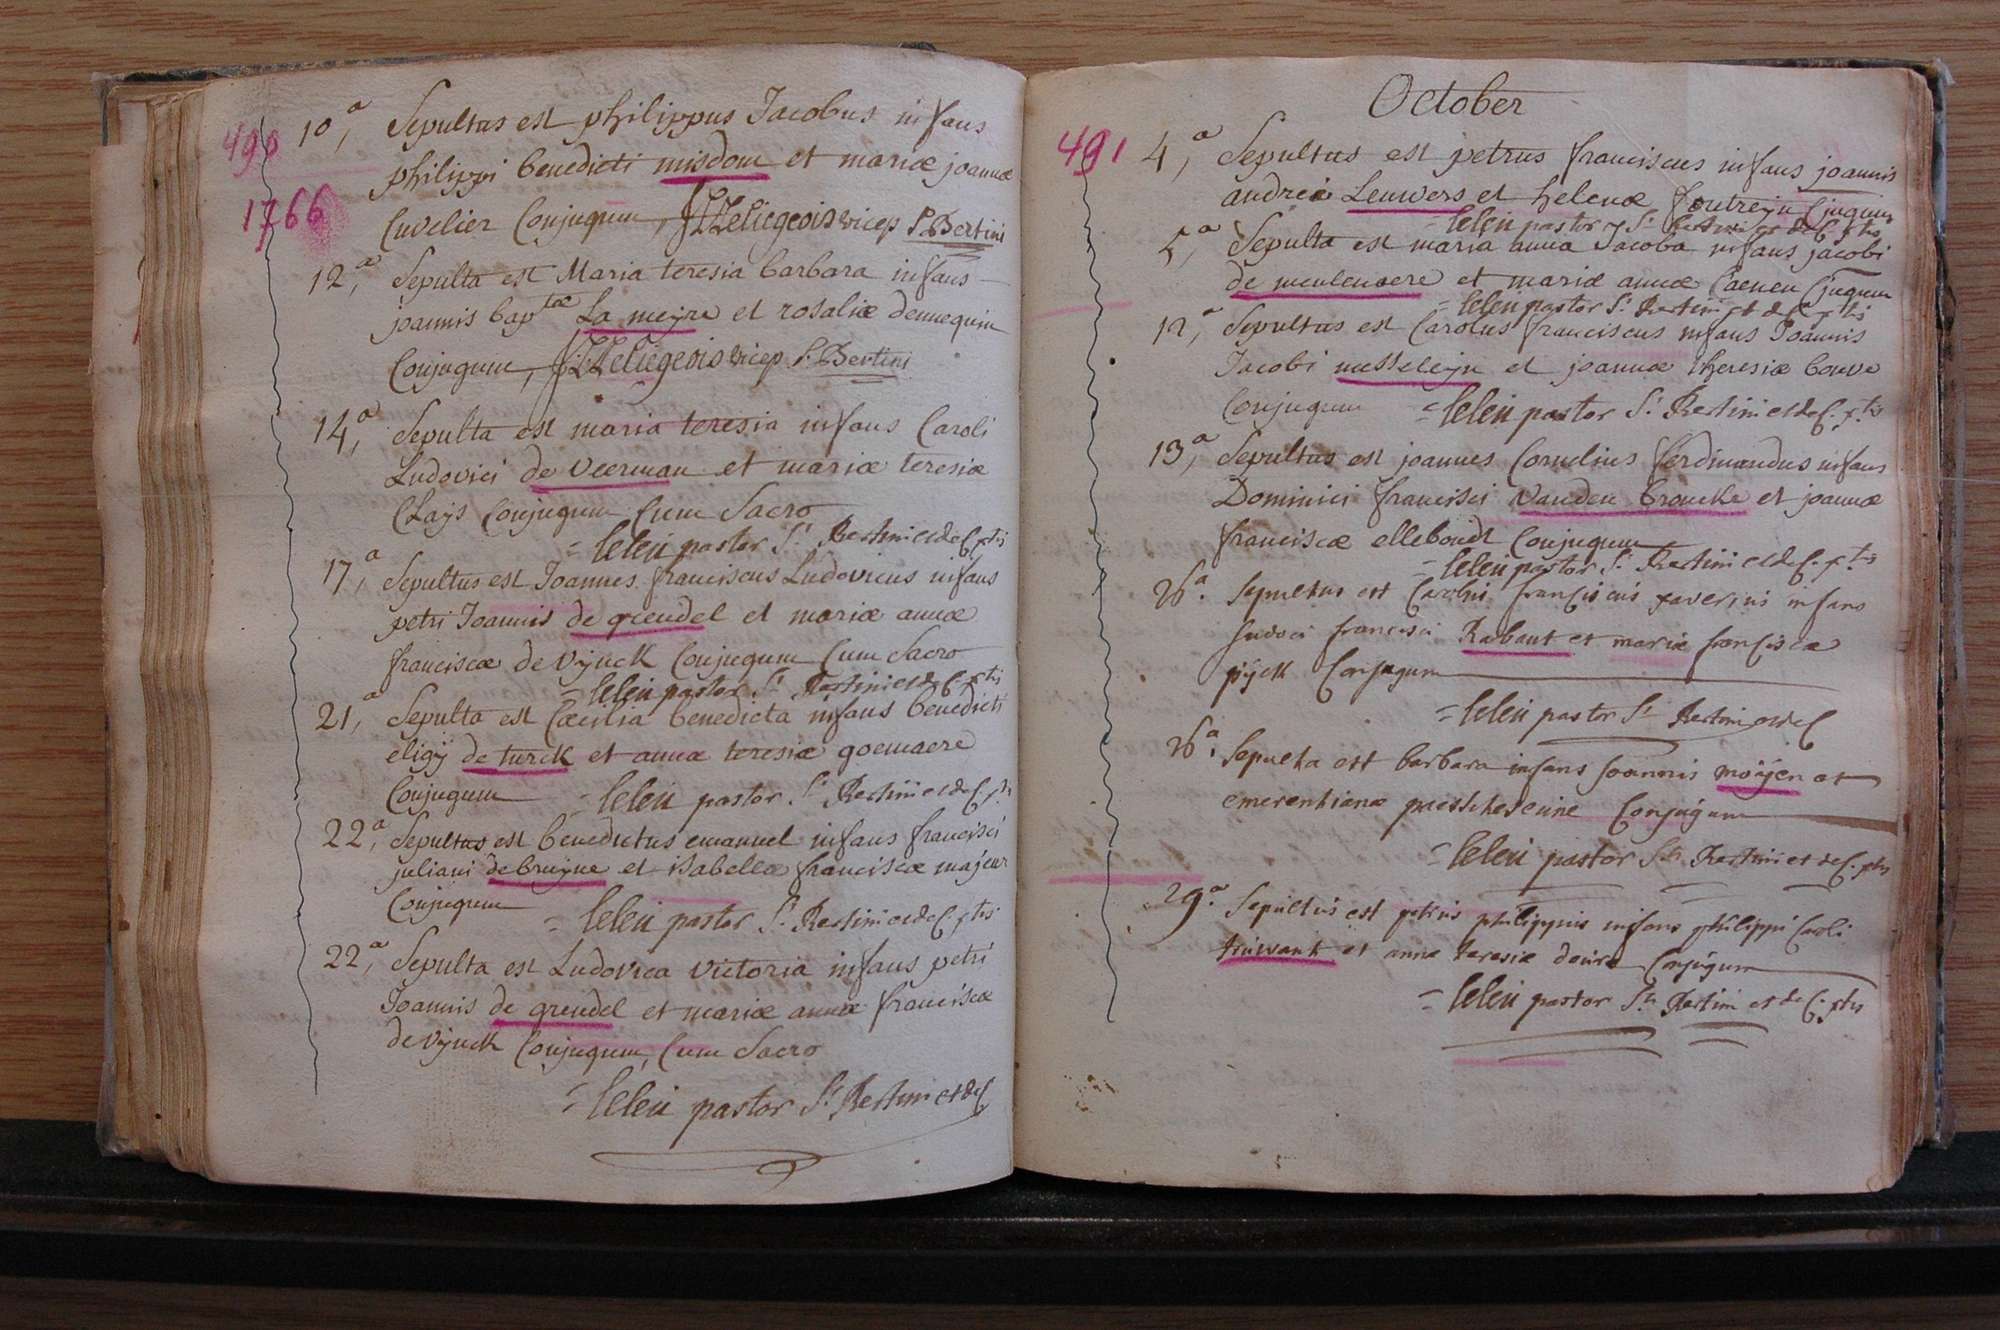 490
1766
10,a Sepultus est philippus Jacobus infans
philippi benedicti misdom et mariæ joannæ
Cuvelier Conjugum, J.L. Leliegeois vicep S. Bertini
12,a Sepulta est Maria teresia barbara infans
joannis baptæ La meyre et rosaliæ dennequin
Conjugum, J.L. Leliegeois vicep S. Bertini
14,a Sepulta est maria teresia infans Caroli
Ludovici de Veerman et mariæ teresiæ
Clays Conjugum Cum Sacro
= leleu pastor St Bertini et de C. xtis
17,a Sepultus est Joannes franciscus Ludovicus infans
petri Joannis de grendel et mariæ annæ
franciscæ de Vynck Conjugum Cum Sacro
= leleu pastor St Bertini et de C. xtis
21,a Sepulta est Cæcilia benedicta infans benedicti
eligij de turck et annæ teresiæ goemaere
Conjugum = leleu pastor St Bertini et de C. xtis
22,a Sepultus est benedictus emanuel infans francisci
juliani de bruyne et isabellæ franciscæ majeur
Conjugum = leleu pastor St Bertini et de C. xtis
22,a Sepulta est Ludovica victoria infans petri
Joannis de grendel et mariæ annæ franciscæ
de Vynck Conjugum, Cum Sacro
= leleu pastor St Bertini et de C
October
491
4,a Sepultus est petrus franciscus infans joannis
andreæ Leuwers et helenæ Conjugum
= leleu pastor St Bertini et de C. xtis
5,a Sepulta est maria anna Jacoba infans jacobi
de meulenaere et mariæ annæ Caenen Cjugum
= leleu pastor St Bertini et de C. xtis
12,a Sepultus est Carolus franciscus infans Joannis
Jacobi musseleyn et joannæ theresiæ bouve
Conjugum = leleu pastor St Bertini et de C. xtis
13,a Sepultus est joannes Cornelius ferdinandus infans
Dominici francisci vanden broucke et joannæ
franciscæ elleboudt Conjugum
= leleu pastor St Bertini et de C. xtis
26a Sepultus est Carolus franciscus xaverius infans
Judoci francisci Rabaut et mariæ franciscæ
pÿck Conjugum
= leleu pastor St Bertini et de C
26a. Sepulta est barbara infans Joannis moÿen et
emerentianæ Conjugum
= leleu pastor St Bertini et de C. xtis
29.a Sepultus est petrus philippus infans philippi Caroli
truwant et annæ teresiæ deure Conjugum
= leleu pastor St Bertini et de C. xtis